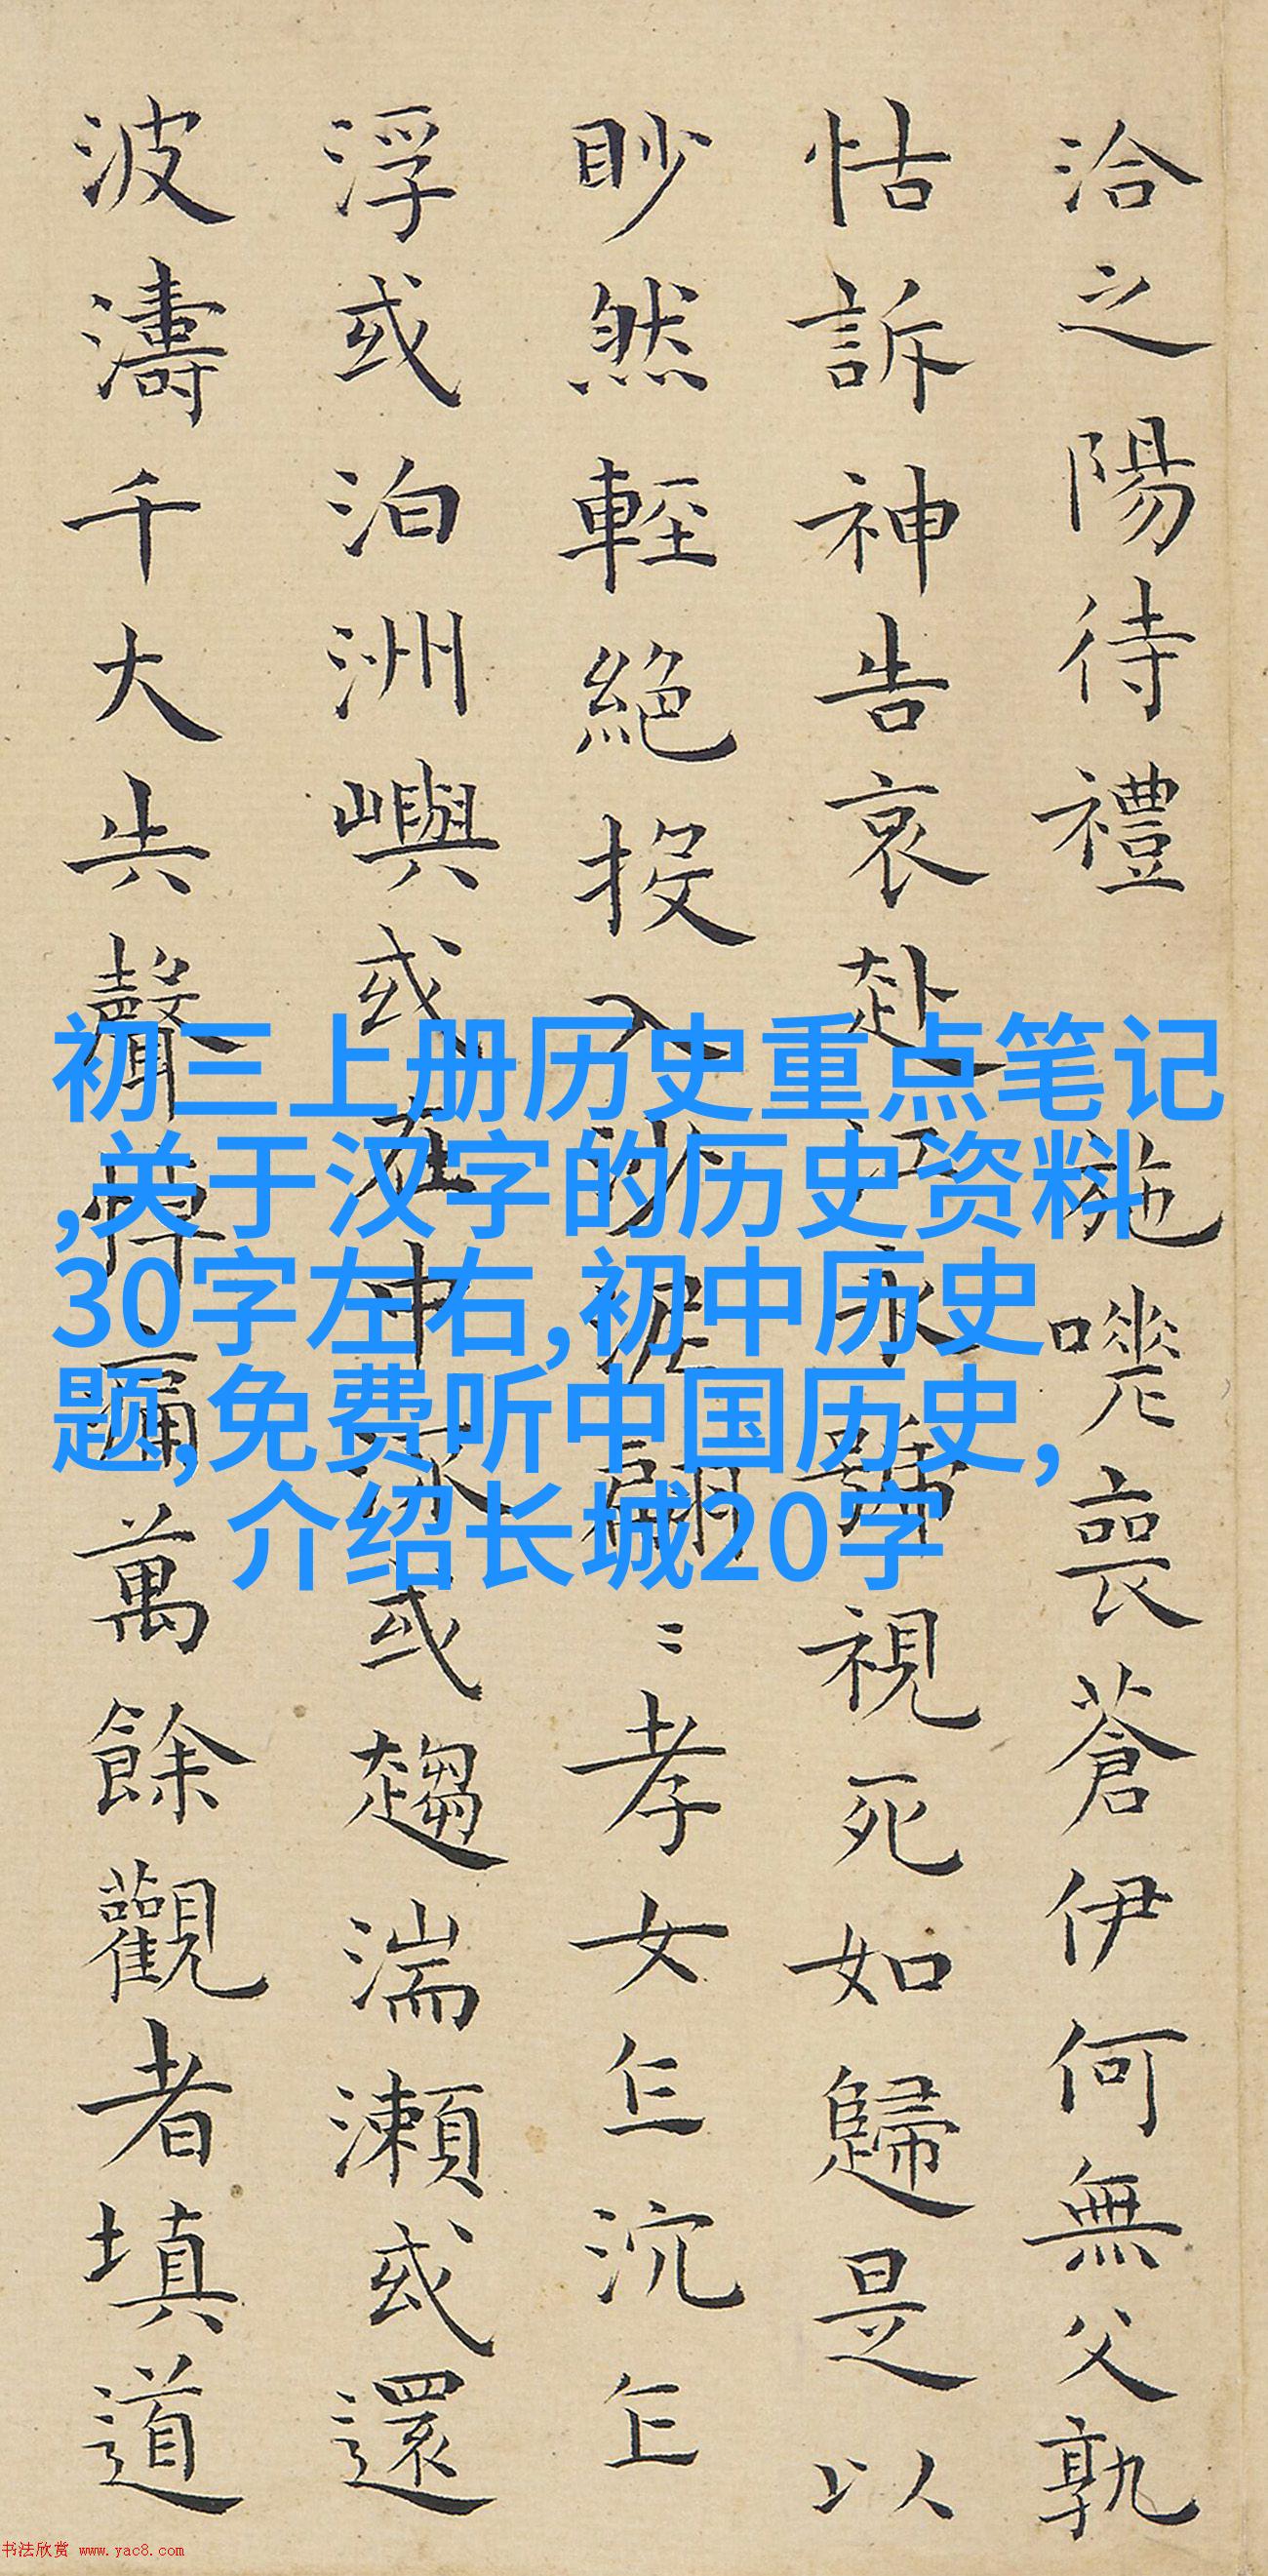 洽之陽待禮施嗟喪蒼伊何無父孰
怙訴神告哀赴江永號視死如歸是以
眇然輕絕投入沙泥翩〻孝女乍沉乍
浮或泊洲嶼或在中流或趨湍瀨或還
波濤千大失聲悼痛萬餘觀者填道
初三上册历史重点笔记
,关于汉字的历史资料
30字左右,初中历史
题,免费听中国历史,
介绍长城20字
书法欣赏 www.yac8.com